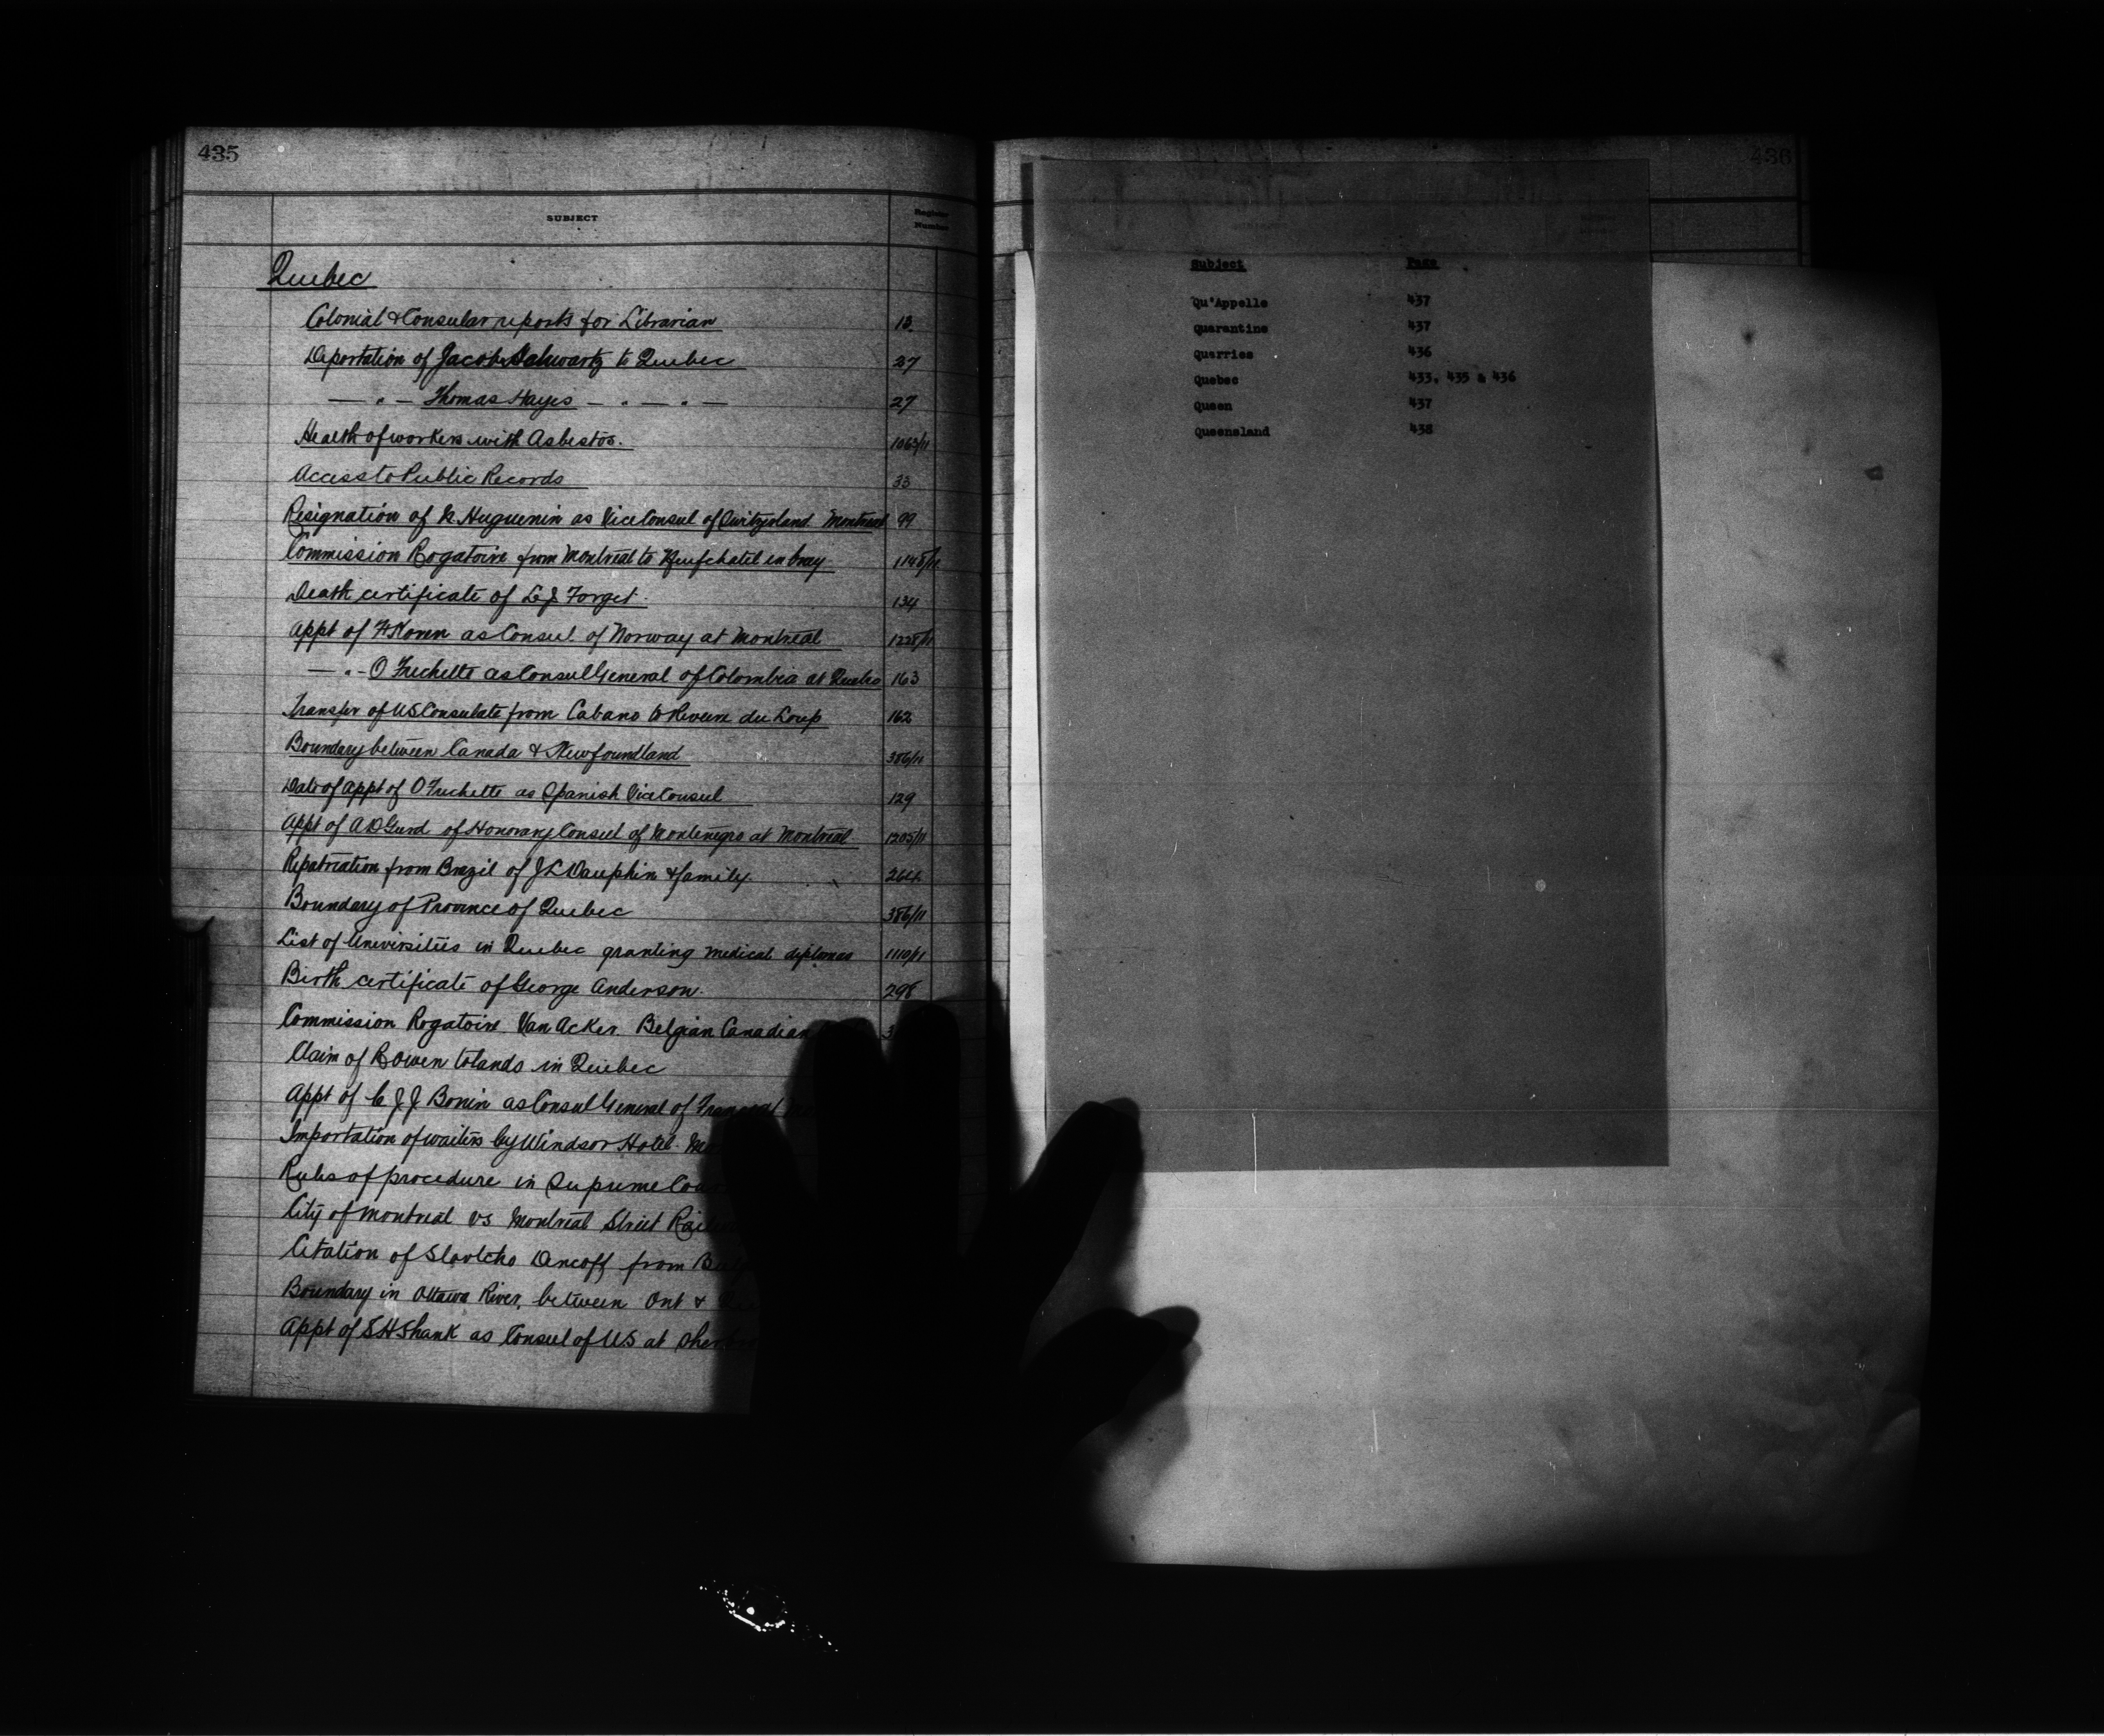 435
SUBJECT
Register Number
Quebec
Colonial & Consular reports for Librarian 13.
Deportation of Jacob Schwartz to Quebec 27
— " — Thomas Hayes — " — " — 27
Health of workers with Asbestos. 1063/11
Access to Public Records 33
Resignation of Huguenin as Vice Consul of Switzerland Montreal 99
Commission Rogatoire from Montreal to Neufchatel en bray 1148/11
Death certificate of Forget. 134
Appt of Koren as Consul of Norway at Montreal 1228/11
— " — O Frechette as Consul General of Colombia at Quebec 163
Transfer of US Consulate from Cabano to Riviere du Loup 162
Boundary between Canada & Newfoundland 386/11
Date of appt of O Frechette as Spanish Vice Consul 129
Appt of A D Gurd of Honorary Consul of Montenegro at Montreal 1205/11
Repatriation from Brazil of J L Dauphin & family 264
Boundary of Province of Quebec 386/11
List of Universities in Quebec granting medical diplomas 1110/11
Birth certificate of George Anderson. 298
Commission Rogatoire Van Acker. Belgian Canadian 3
Claim of R Owen to lands in Quebec
Appt of C J J Bonin as Consul General of France at
Importation of waiters by Windsor Hotel.
Rules of procedure in Supreme
City of Montreal vs Montreal Street
Citation of Slavtcho Dencoff from
Boundary in Ottawa River, between Ont &
Appt of E H Shank as Consul of US at
436
Subject Page
Qu'Appelle 437
Quarantine 437
Quarries 436
Quebec 433, 435 & 436
Queen 437
Queensland 438